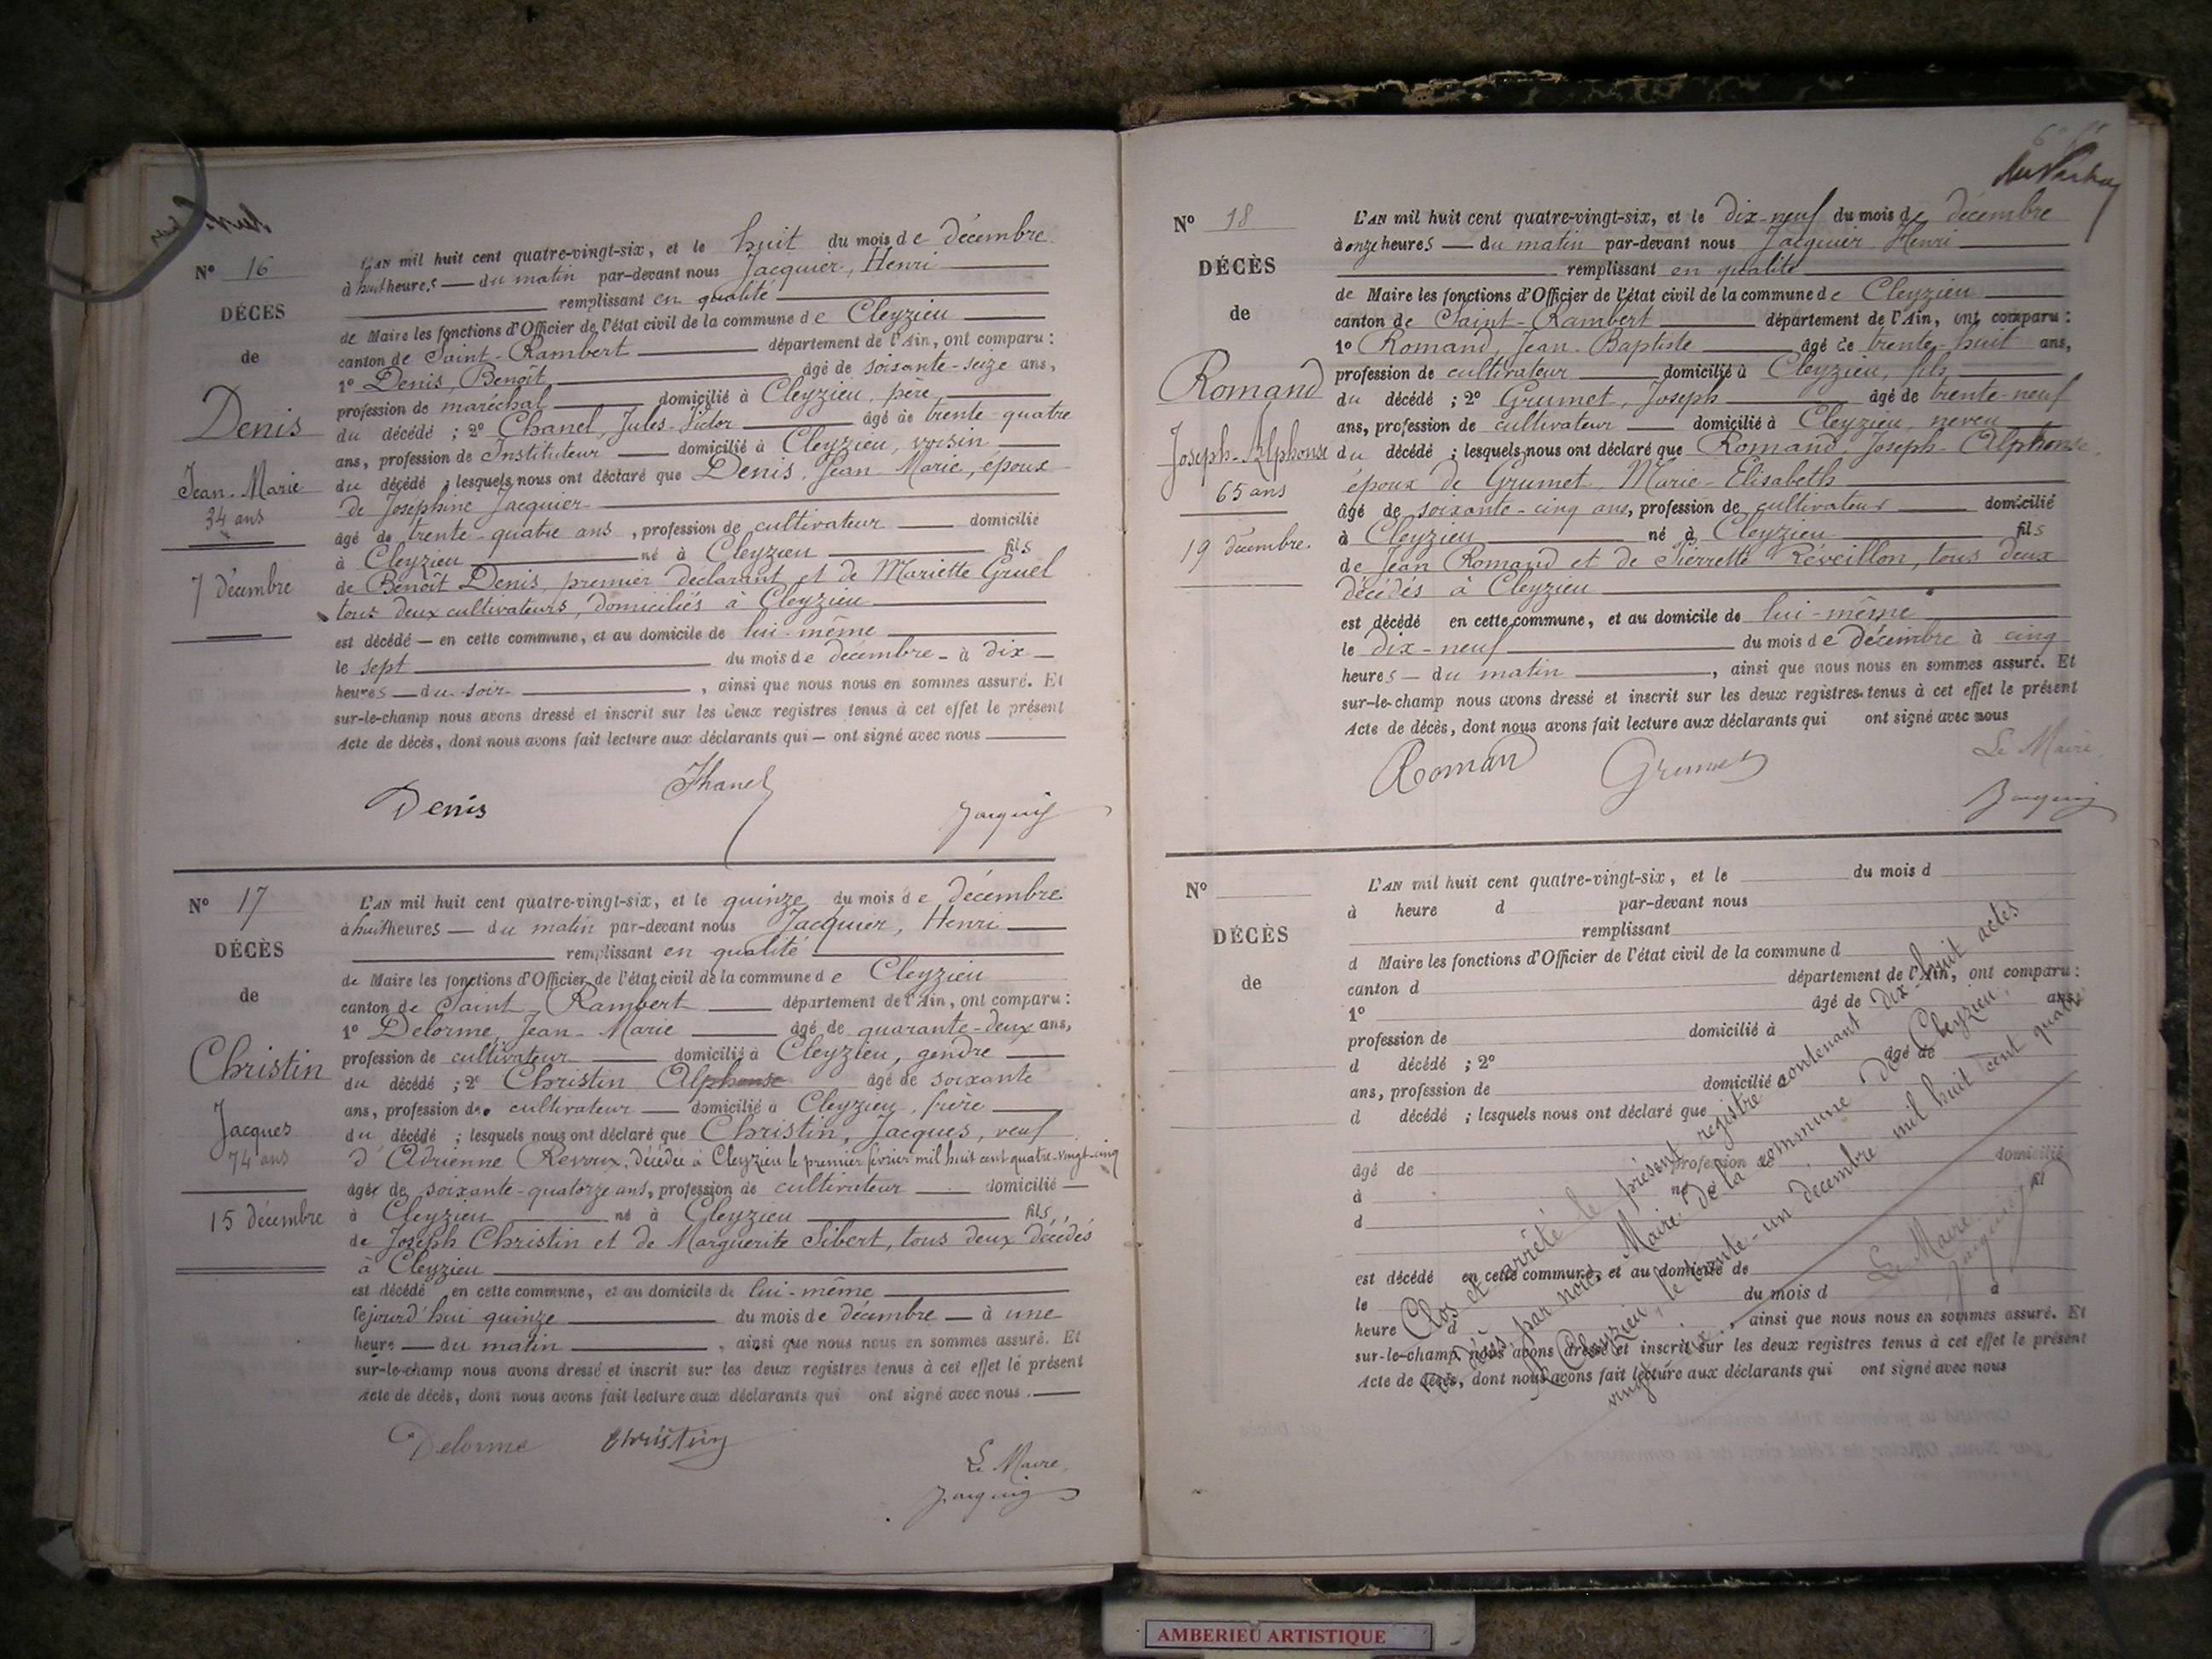 N° 16
DÉCÈS
de
Denis
Jean-Marie
34 ans
7 décembre
L'AN mil huit cent quatre-vingt-six, et le huit du mois de décembre
à huit heures — du matin par-devant nous Jacquier, Henri
remplissant en qualité
de Maire les fonctions d'Officier de l'état civil de la commune de Cleyzieu
canton de Saint-Rambert département de l'Ain, ont comparu :
1° Denis, Benoît âgé de soixante-seize ans,
profession de maréchal domicilié à Cleyzieu, père
du décédé ; 2° Chanel, Jules-Victor âgé de trente-quatre
ans, profession de Instituteur domicilié à Cleyzieu, voisin
du décédé ; lesquels nous ont déclaré que Denis, Jean Marie, époux
de Joséphine Jacquier
âgé de trente-quatre ans, profession de cultivateur domicilié
à Cleyzieu né à Cleyzieu fils
de Benoît Denis, premier déclarant et de Mariette Gruel
tous deux cultivateurs, domiciliés à Cleyzieu
est décédé — en cette commune, et au domicile de lui-même
le sept du mois de décembre - à dix
heures — du soir, ainsi que nous nous en sommes assuré. Et
sur-le-champ nous avons dressé et inscrit sur les deux registres tenus à cet effet le présent
Acte de décès, dont nous avons fait lecture aux déclarants qui — ont signé avec nous
Denis Jhanel
N° 17
DÉCÈS
de
Christin
Jacques
74 ans
15 décembre
L'AN mil huit cent quatre-vingt-six, et le quinze du mois de décembre
à huit heures — du matin par-devant nous Jacquier, Henri
remplissant en qualité
de Maire les fonctions d'Officier de l'état civil de la commune de Cleyzieu
canton de Saint-Rambert département de l'Ain, ont comparu :
1° Delorme, Jean-Marie âgé de quarante-deux ans,
profession de cultivateur domicilié à Cleyzieu, gendre
du décédé ; 2° Christin Alphonse âgé de soixante
ans, profession de cultivateur — domicilié à Cleyzieu, frère
du décédé ; lesquels nous ont déclaré que Christin, Jacques, veuf
d'Adrienne Revoux, décédée à Cleyzieu le premier février mil huit cent quatre-vingt-cinq
âgé de soixante-quatorze ans, profession de cultivateur domicilié
à Cleyzieu né à Cleyzieu fils
de Joseph Christin et de Marguerite Sibert, tous deux décédés
à Cleyzieu
est décédé en cette commune, et au domicile de lui-même
le jourd'hui quinze du mois de décembre — à une
heure — du matin, ainsi que nous nous en sommes assuré. Et
sur-le-champ nous avons dressé et inscrit sur les deux registres tenus à cet effet le présent
Acte de décès, dont nous avons fait lecture aux déclarants qui ont signé avec nous.
Delorme Christin
Le Maire,
N° 18
DÉCÈS
de
Romand
Joseph-Alphonse
65 ans
19 décembre.
L'AN mil huit cent quatre-vingt-six, et le dix-neuf du mois de décembre
à onze heures — du matin par-devant nous Jacquier Henri
remplissant en qualité
de Maire les fonctions d'Officier de l'état civil de la commune de Cleyzieu
canton de Saint-Rambert département de l'Ain, ont comparu :
1° Romand, Jean-Baptiste âgé de trente-huit ans,
profession de cultivateur domicilié à Cleyzieu, fils
du décédé ; 2° Grumet, Joseph âgé de trente-neuf
ans, profession de cultivateur domicilié à Cleyzieu, neveu
du décédé ; lesquels nous ont déclaré que Romand, Joseph-Alphonse,
époux de Grumet, Marie-Elisabeth
âgé de soixante-cinq ans, profession de cultivateur domicilié
à Cleyzieu né à Cleyzieu fils
de Jean Romand et de Pierrette Réveillon, tous deux
décédés à Cleyzieu
est décédé en cette commune, et au domicile de lui-même
le dix-neuf du mois de décembre à cinq
heures — du matin, ainsi que nous nous en sommes assuré. Et
sur-le-champ nous avons dressé et inscrit sur les deux registres tenus à cet effet le présent
Acte de décès, dont nous avons fait lecture aux déclarants qui ont signé avec nous
Le Maire,
Roman Grumet
N°
DÉCÈS
de
L'AN mil huit cent quatre-vingt-six, et le du mois d
à heure d par-devant nous
remplissant
d Maire les fonctions d'Officier de l'état civil de la commune d
canton d département de l'Ain, ont comparu :
1° âgé de ans,
profession de domicilié à
d décédé ; 2° âgé de
ans, profession de domicilié à
d décédé ; lesquels nous ont déclaré que
âgé de profession de domicilié
à né fil
d
est décédé en cette commune, et au domicile de
le du mois d à
heure d, ainsi que nous nous en sommes assuré. Et
sur-le-champ nous avons dressé et inscrit sur les deux registres tenus à cet effet le présent
Acte de décès, dont nous avons fait lecture aux déclarants qui ont signé avec nous
Clos et arrêté le présent registre contenant dix-huit actes
de décès par nous, Maire de la commune de Cleyzieu,
A Cleyzieu, le trente-un décembre mil huit cent quatre
vingt-six.
Le Maire
Jacquier
AMBERIEU ARTISTIQUE